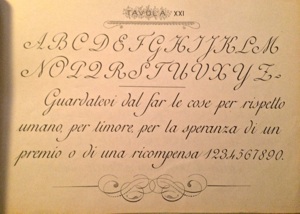 TAVOLA XXI
A B C D E F G H I J K L M
N O P Q R S T U V X Y Z
Guardatevi dal far le cose per rispetto
umano, per timore, per la speranza di un
premio o di una ricompensa 1234567890.